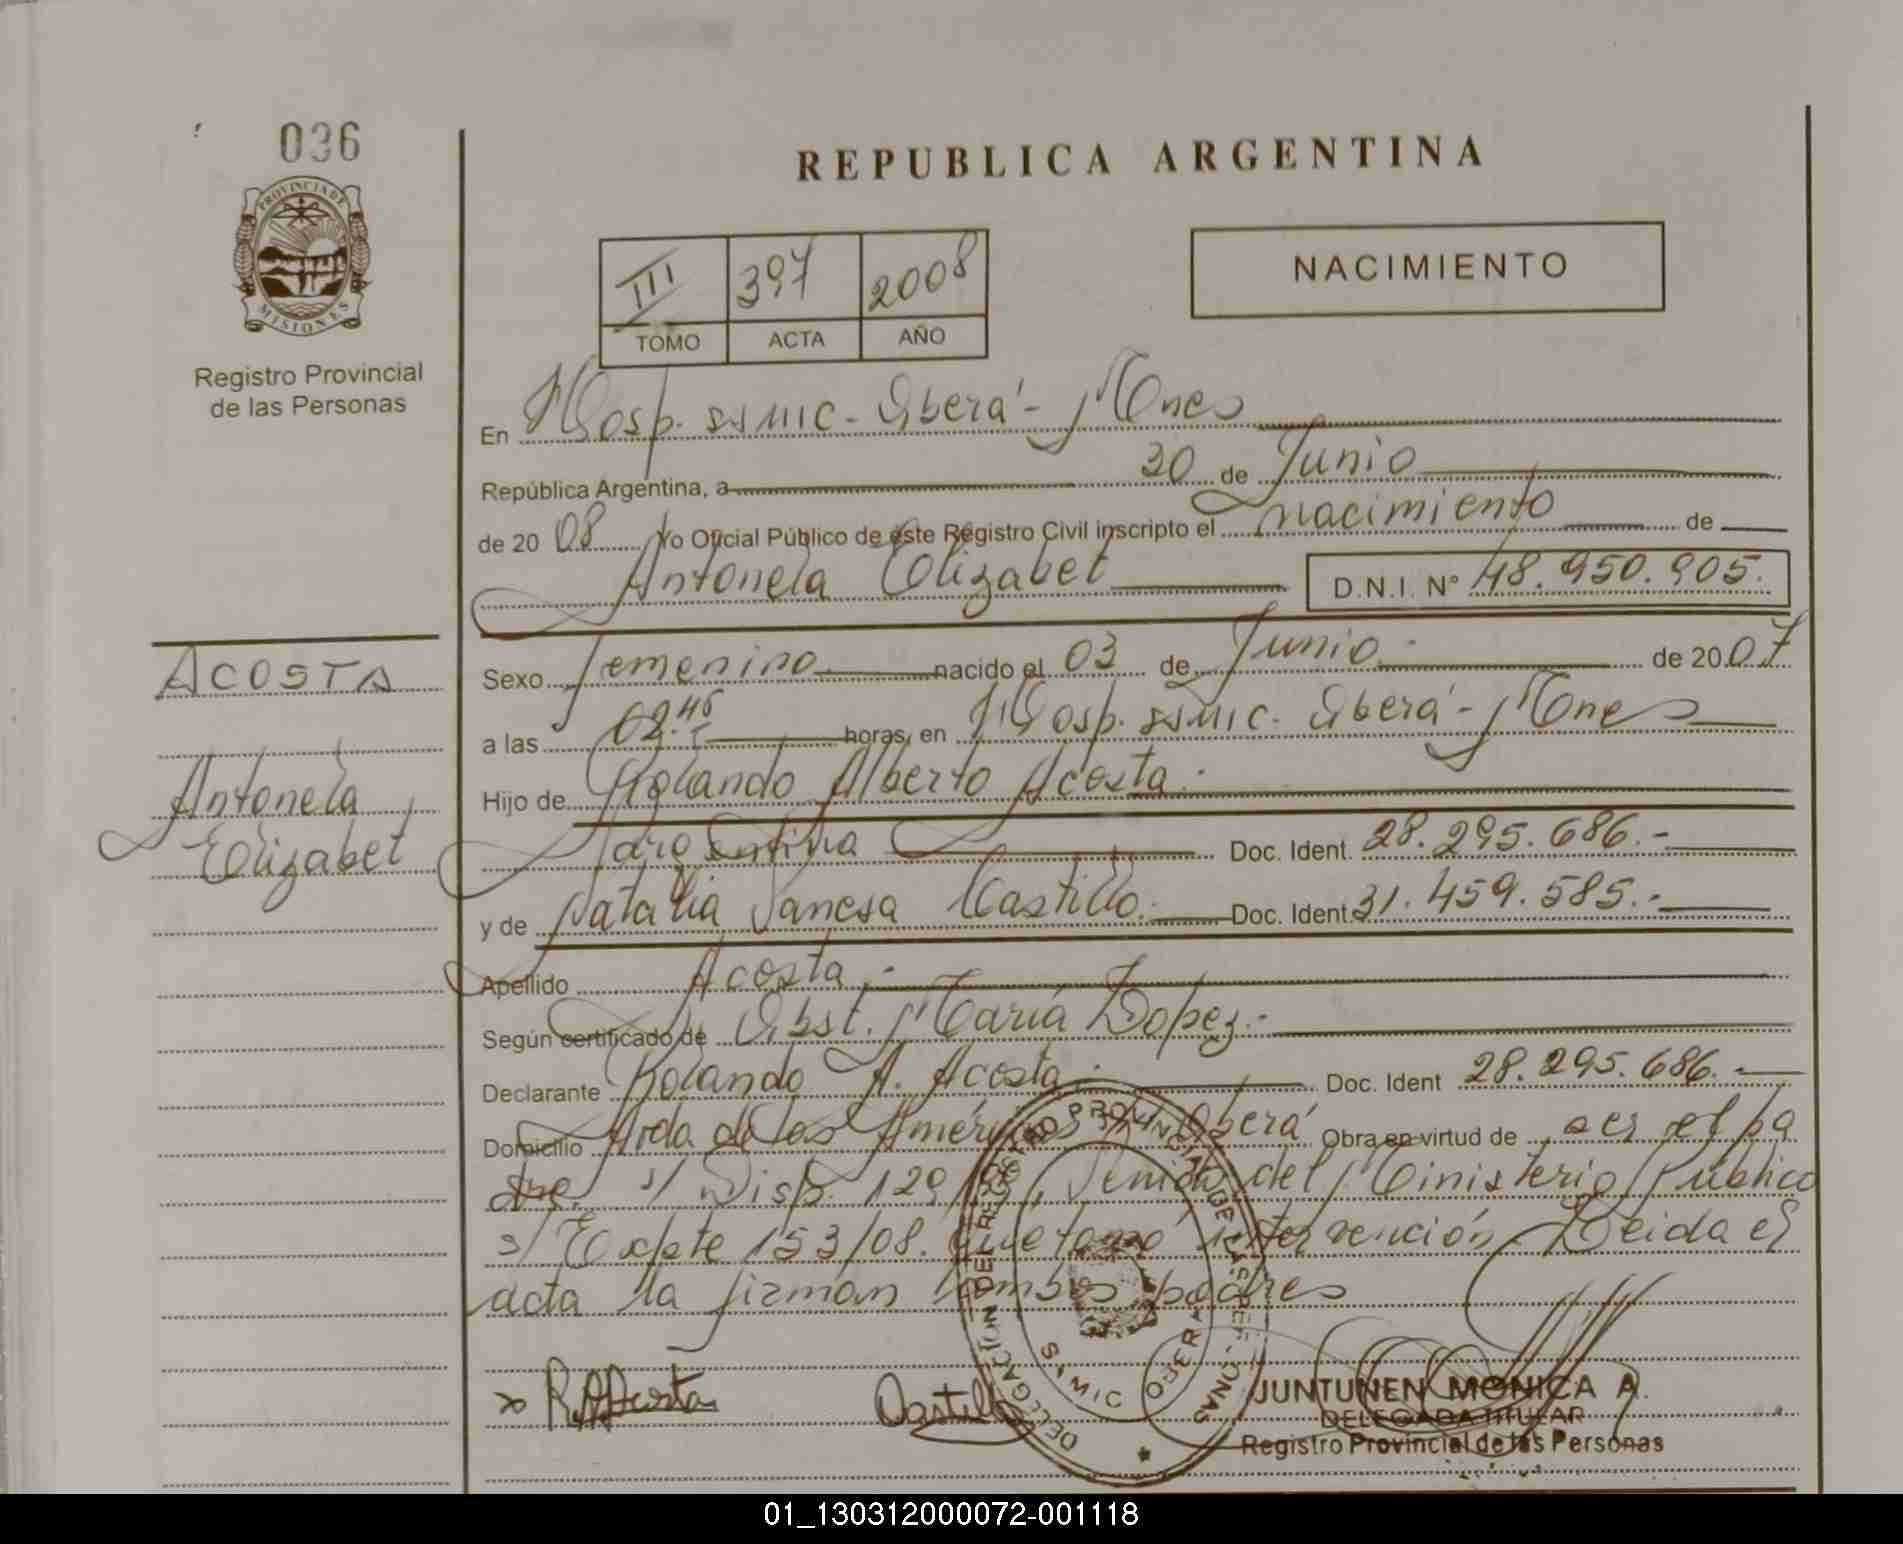 036
PROVINCIA DE
MISIONES
Registro Provincial
de las Personas
REPUBLICA ARGENTINA
III 397 2008
TOMO ACTA AÑO
NACIMIENTO
En Hosp. SSMIC - Oberá - Mnes
República Argentina, a 30 de Junio
de 20 08 Yo Oficial Público de este Registro Civil inscripto el nacimiento de
Antonela Elizabet D.N.I. N° 48.950.905.
ACOSTA
Antonela
Elizabet
Sexo femenino nacido el 03 de Junio de 20 07
a las 02.45 horas, en Hosp. SSMIC. Oberá - Mnes
Hijo de Rolando Alberto Acosta.
argentina Doc. Ident. 28.295.686.-
y de Natalia Vanesa Castillo. Doc. Ident. 31.459.585.-
Apellido Acosta.-
Según certificado de Obst. María Lopez.-
Declarante Rolando A. Acosta. Doc. Ident 28.295.686.-
Domicilio Avda de las Américas Oberá Obra en virtud de ser el pa
dre. s/ Disp. 129 del Ministerio Público
s/ Expte 153/08. que tomó intervención. Leida el
acta la firman ambos padres
R.A.Acosta Castillo
DELEGACION DEL REGISTRO PROVINCIAL DE LAS PERSONAS
SAMIC OBERA
JUNTUNEN MONICA A.
DELEGADA TITULAR
Registro Provincial de las Personas
01_130312000072-001118